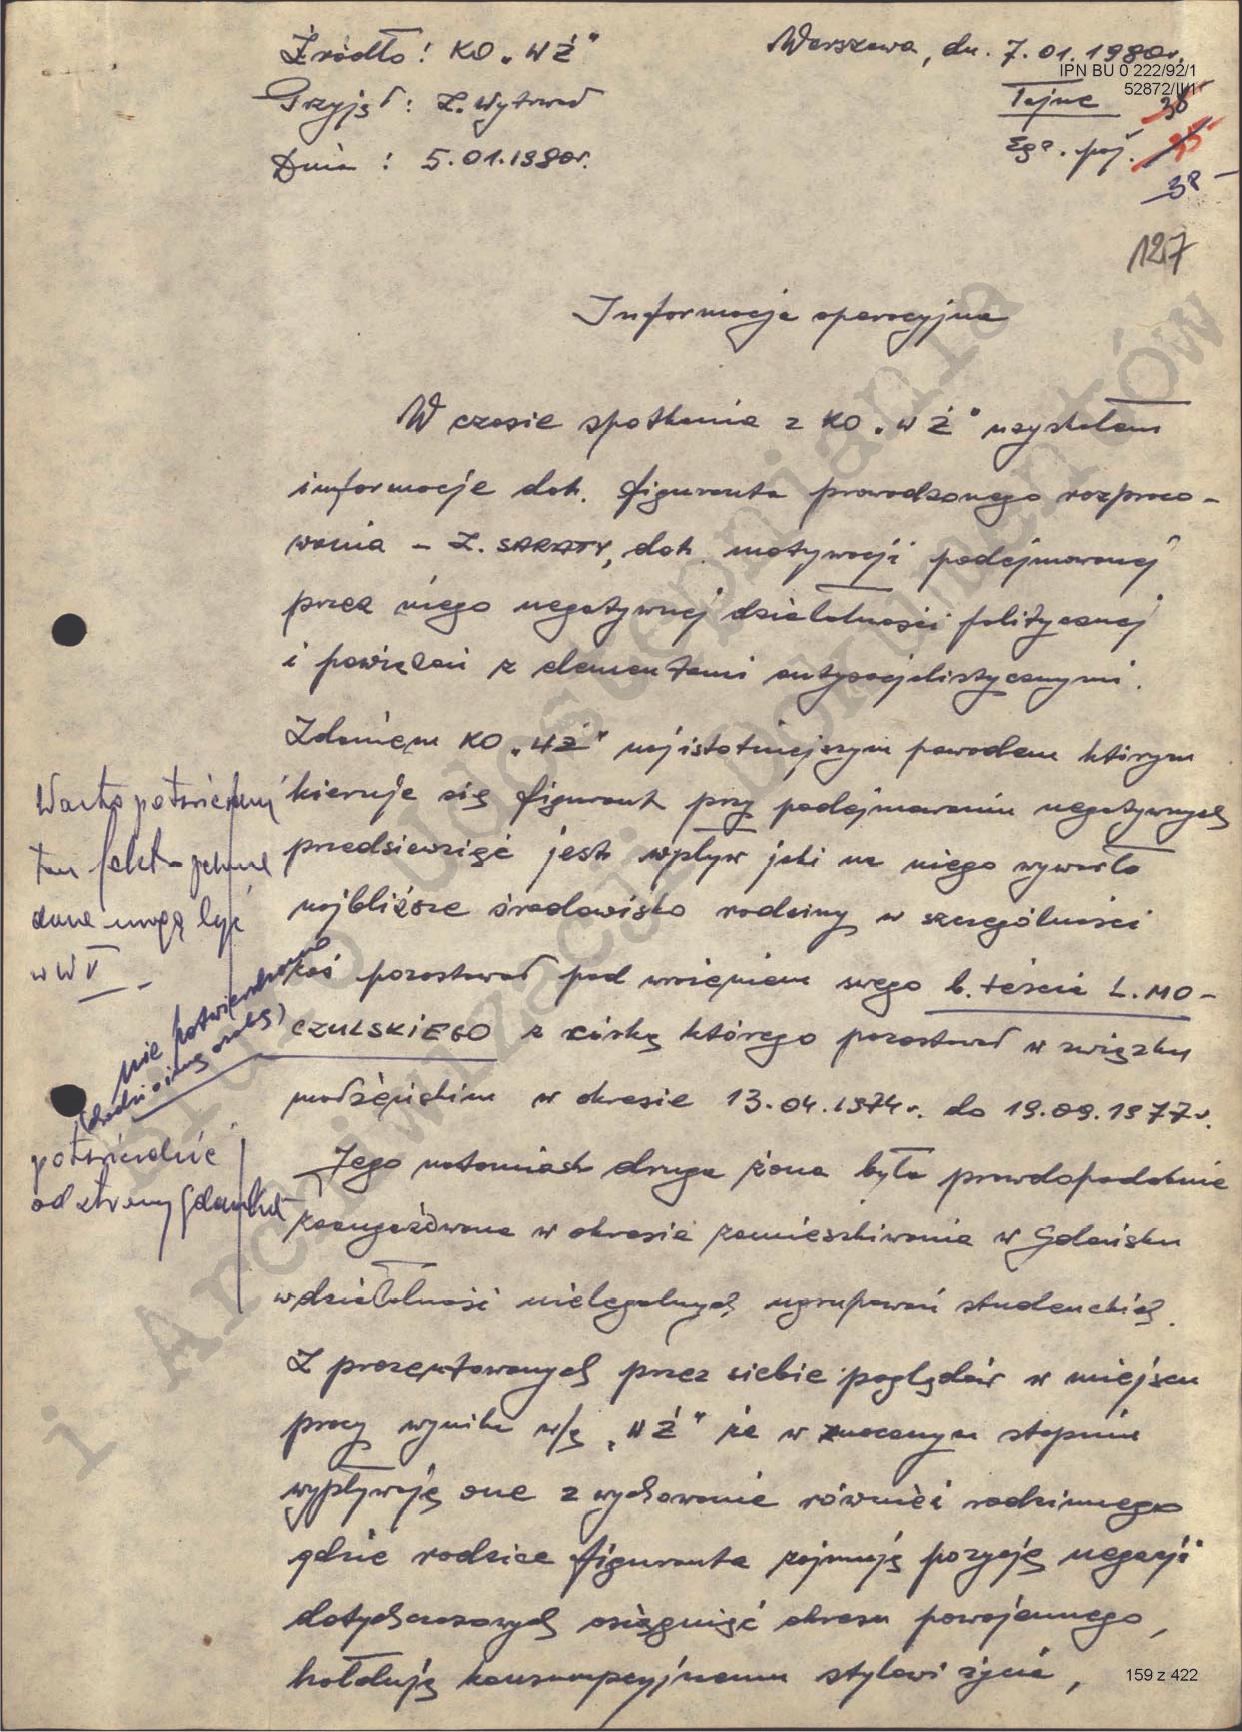 Źródło: KO "WŻ"
Przyjął: Z. Wytrwał
Dnia: 5.01.1980r.
Warszawa, dn. 7.01.1980r.
IPN BU 0 222/92/1
52872/II/1
Tajne
Egz. poj.
38
127
Informacja operacyjna
W czasie spotkania z KO "WŻ" uzyskałem
informacje dot. figuranta prowadzonego rozpraco-
wania – Z. SARATY, dot. motywacji podejmowanej
przez niego negatywnej działalności politycznej
i powiązań z elementami antysocjalistycznymi.
Zdaniem KO "WŻ" najistotniejszym powodem którym
kieruje się figurant przy podejmowaniu negatywnych
przedsięwzięć jest wpływ jaki na niego wywarło
najbliższe środowisko rodziny w szczególności
zaś pozostawał pod wrażeniem swego b. teścia L. MO-
CZULSKIEGO z córką którego pozostawał w związku
małżeńskim w okresie 13.04.1974r. do 19.09.1977r.
Jego natomiast druga żona była prawdopodobnie
zaangażowana w okresie zamieszkiwania w Gdańsku
w działalność nielegalnych ugrupowań studenckich.
Z prezentowanych przez siebie poglądów w miejscu
pracy wynika w/g "WŻ" że w znacznym stopniu
wypływają one z wychowania również rodzinnego
gdzie rodzice figuranta zajmują pozycję negacji
dotychczasowych osiągnięć okresu powojennego,
hołdują konsumpcyjnemu stylowi życia,
Warto potwierdzić
ten fakt – pełne
dane mogą być
w W V
nie potwierdzono
(chodzi o inną osobę)
potwierdzić
od strony Gdańska
Biuro Udostępniania
i Archiwizacji Dokumentów
159 z 422